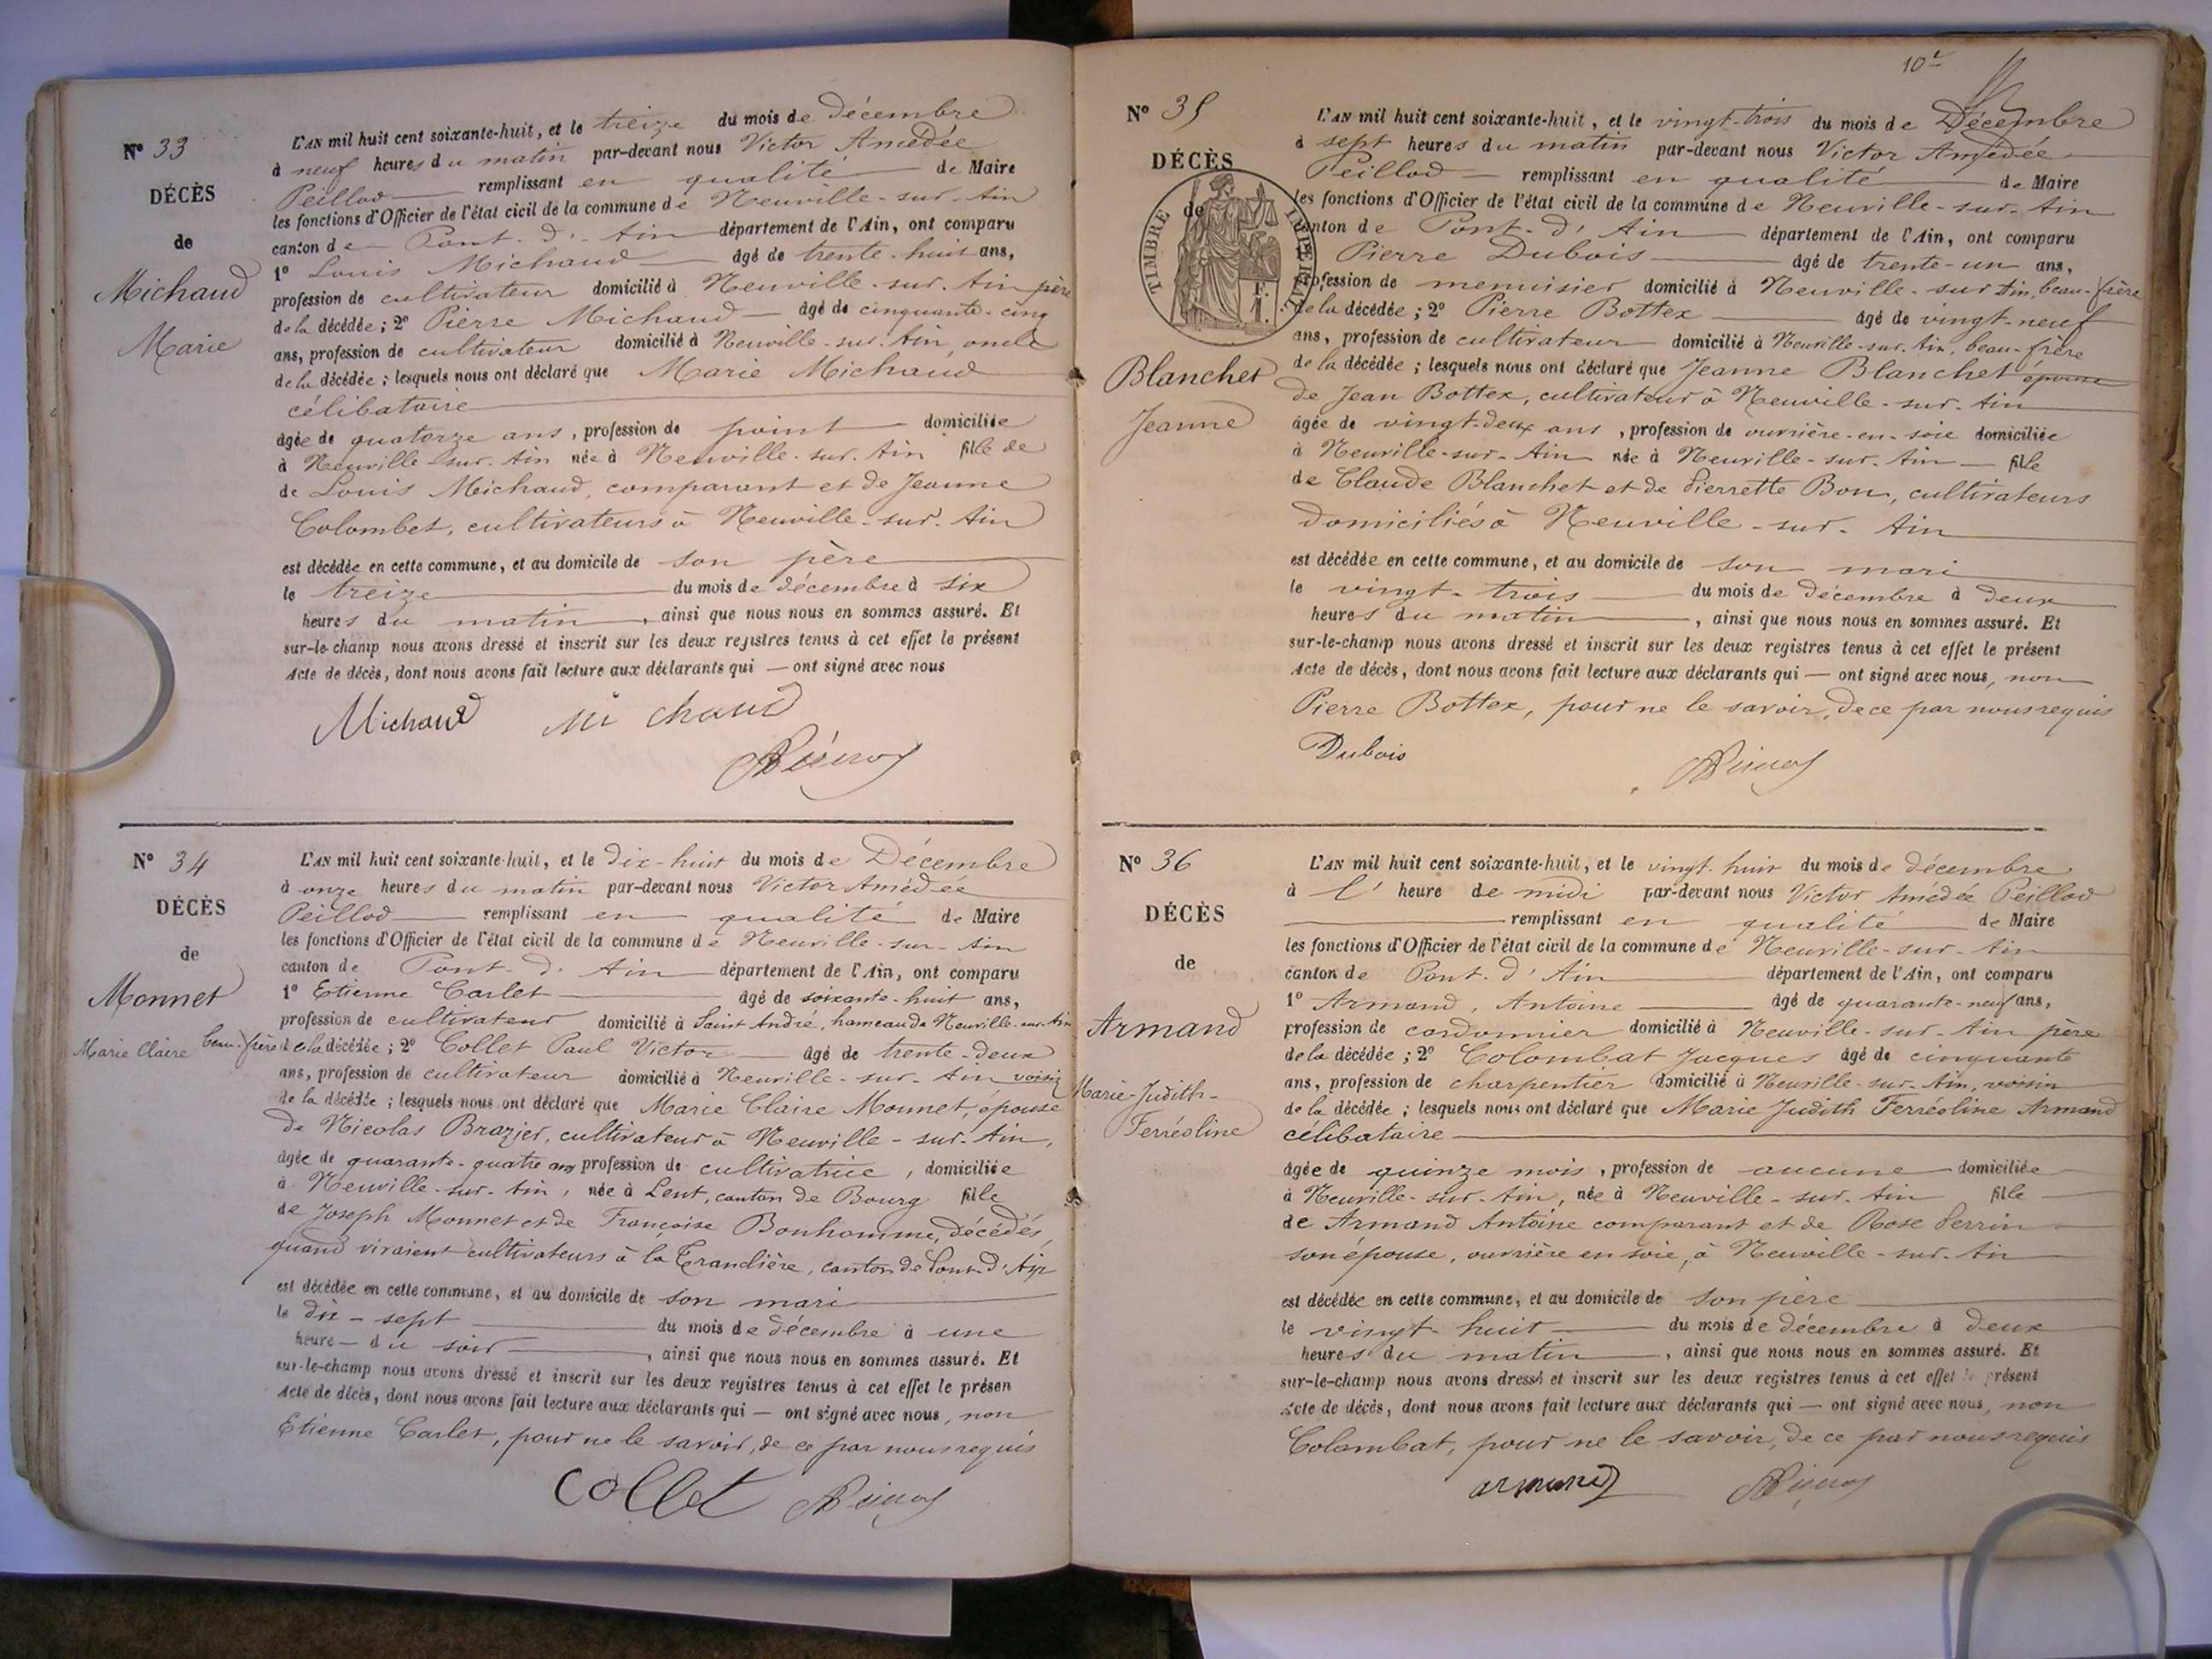 N° 33
DÉCÈS
de
Michaud
Marie
L'AN mil huit cent soixante-huit, et le treize du mois de Décembre
à neuf heures du matin par-devant nous Victor Amédée
Peillod remplissant en qualité de Maire
les fonctions d'Officier de l'état civil de la commune de Neuville-sur-Ain
canton de Pont-d'-Ain département de l'Ain, ont comparu
1° Louis Michaud âgé de trente-huit ans,
profession de cultivateur domicilié à Neuville-sur-Ain père
de la décédée ; 2° Pierre Michaud âgé de cinquante-cinq
ans, profession de cultivateur domicilié à Neuville-sur-Ain, oncle
de la décédée ; lesquels nous ont déclaré que Marie Michaud
célibataire
âgée de quatorze ans, profession de point domiciliée
à Neuville-sur-Ain née à Neuville-sur-Ain fille de
de Louis Michaud, comparant et de Jeanne
Colombet, cultivateurs à Neuville-sur-Ain
est décédée en cette commune, et au domicile de son père
le treize du mois de décembre à six
heures du matin, ainsi que nous nous en sommes assuré. Et
sur-le-champ nous avons dressé et inscrit sur les deux registres tenus à cet effet le présent
Acte de décès, dont nous avons fait lecture aux déclarants qui — ont signé avec nous
Michaud Michaud
N° 34
DÉCÈS
de
Monnet
Marie Claire
L'AN mil huit cent soixante-huit, et le Dix-huit du mois de Décembre
à onze heures du matin par-devant nous Victor Amédée
Peillod remplissant en qualité de Maire
les fonctions d'Officier de l'état civil de la commune de Neuville-sur-Ain
canton de Pont-d'Ain département de l'Ain, ont comparu
1° Etienne Carlet âgé de soixante-huit ans,
profession de cultivateur domicilié à Saint André, hameau de Neuville-sur-Ain
beau-frère de la décédée ; 2° Collet Paul Victor âgé de trente-deux
ans, profession de cultivateur domicilié à Neuville-sur-Ain voisin
de la décédée ; lesquels nous ont déclaré que Marie Claire Monnet, épouse
de Nicolas Brazier, cultivateur à Neuville-sur-Ain,
âgée de quarante-quatre ans profession de cultivatrice, domiciliée
à Neuville-sur-Ain, née à Lent, canton de Bourg fille
de Joseph Monnet et de Françoise Bonhomme, décédés,
quand vivaient cultivateurs à la Tranclière, canton de Pont-d'Ain
est décédée en cette commune, et au domicile de son mari
le dix-sept du mois de décembre à une
heure — du soir, ainsi que nous nous en sommes assuré. Et
sur-le-champ nous avons dressé et inscrit sur les deux registres tenus à cet effet le présen
Acte de décès, dont nous avons fait lecture aux déclarants qui — ont signé avec nous, non
Etienne Carlet, pour ne le savoir, de ce par nous requis
Collet
10e
N° 35
DÉCÈS
de
TIMBRE IMPÉRIAL
Blanchet
Jeanne
L'AN mil huit cent soixante-huit, et le vingt-trois du mois de Décembre
à sept heures du matin par-devant nous Victor Amédée
Peillod remplissant en qualité de Maire
les fonctions d'Officier de l'état civil de la commune de Neuville-sur-Ain
canton de Pont-d'Ain département de l'Ain, ont comparu
Pierre Dubois âgé de trente-un ans,
profession de menuisier domicilié à Neuville-sur Ain, beau-frère
de la décédée ; 2° Pierre Bottex âgé de vingt-neuf
ans, profession de cultivateur domicilié à Neuville-sur-Ain, beau-frère
de la décédée ; lesquels nous ont déclaré que Jeanne Blanchet épouse
de Jean Bottex, cultivateur à Neuville-sur-Ain
âgée de vingt-deux ans, profession de ouvrière-en-soie domiciliée
à Neuville-sur-Ain née à Neuville-sur-Ain — fille
de Claude Blanchet et de Pierrette Bon, cultivateurs
domiciliés à Neuville-sur-Ain
est décédée en cette commune, et au domicile de son mari
le vingt-trois du mois de décembre à deux
heures du matin, ainsi que nous nous en sommes assuré. Et
sur-le-champ nous avons dressé et inscrit sur les deux registres tenus à cet effet le présent
Acte de décès, dont nous avons fait lecture aux déclarants qui — ont signé avec nous, non
Pierre Bottex, pour ne le savoir, de ce par nous requis
Dubois
N° 36
DÉCÈS
de
Armand
Marie-Judith-
Ferréoline
L'AN mil huit cent soixante-huit, et le vingt-huit du mois de décembre
à l' heure de midi par-devant nous Victor Amédée Peillod
remplissant en qualité de Maire
les fonctions d'Officier de l'état civil de la commune de Neuville-sur-Ain
canton de Pont-d'Ain département de l'Ain, ont comparu
1° Armand, Antoine âgé de quarante-neuf ans,
profession de cordonnier domicilié à Neuville-sur-Ain père
de la décédée ; 2° Colombat Jacques âgé de cinquante
ans, profession de charpentier domicilié à Neuville-sur-Ain, voisin
de la décédée ; lesquels nous ont déclaré que Marie Judith Ferréoline Armand
célibataire
âgée de quinze mois, profession de aucune domiciliée
à Neuville-sur-Ain, née à Neuville-sur-Ain fille
de Armand Antoine comparant et de Rose Perrin
son épouse, ouvrière en soie, à Neuville-sur-Ain
est décédée en cette commune, et au domicile de son père
le vingt-huit du mois de décembre à deux
heures du matin, ainsi que nous nous en sommes assuré. Et
sur-le-champ nous avons dressé et inscrit sur les deux registres tenus à cet effet le présent
Acte de décès, dont nous avons fait lecture aux déclarants qui — ont signé avec nous, non
Colombat, pour ne le savoir, de ce par nous requis
armand